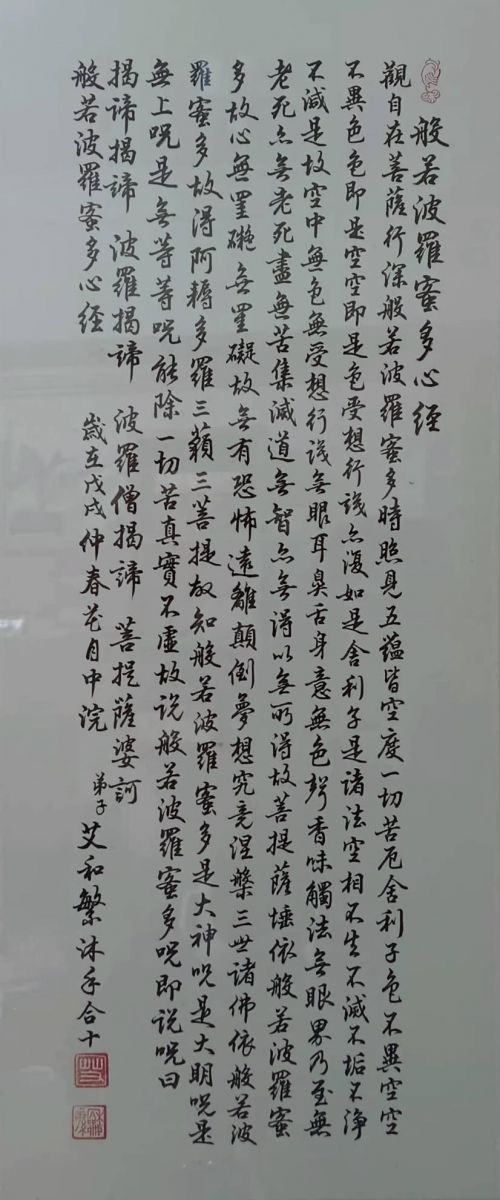 般若波羅蜜多心經
觀自在菩薩行深般若波羅蜜多時照見五蘊皆空度一切苦厄舍利子色不異空空
不異色色即是空空即是色受想行識亦復如是舍利子是諸法空相不生不滅不垢不淨
不減是故空中無色無受想行識無眼耳鼻舌身意無色聲香味觸法無眼界乃至無
老死亦無老死盡無苦集滅道無智亦無得以無所得故菩提薩埵依般若波羅蜜
多故心無罣礙無罣礙故無有恐怖遠離顛倒夢想究竟涅槃三世諸佛依般若波
羅蜜多故得阿耨多羅三藐三菩提故知般若波羅蜜多是大神呪是大明呪是
無上呪是無等等呪能除一切苦真實不虛故說般若波羅蜜多呪即說呪曰
揭諦揭諦 波羅揭諦 波羅僧揭諦 菩提薩婆訶
般若波羅蜜多心經 歲在戊戌仲春花月中浣 弟子艾和繁沐手合十